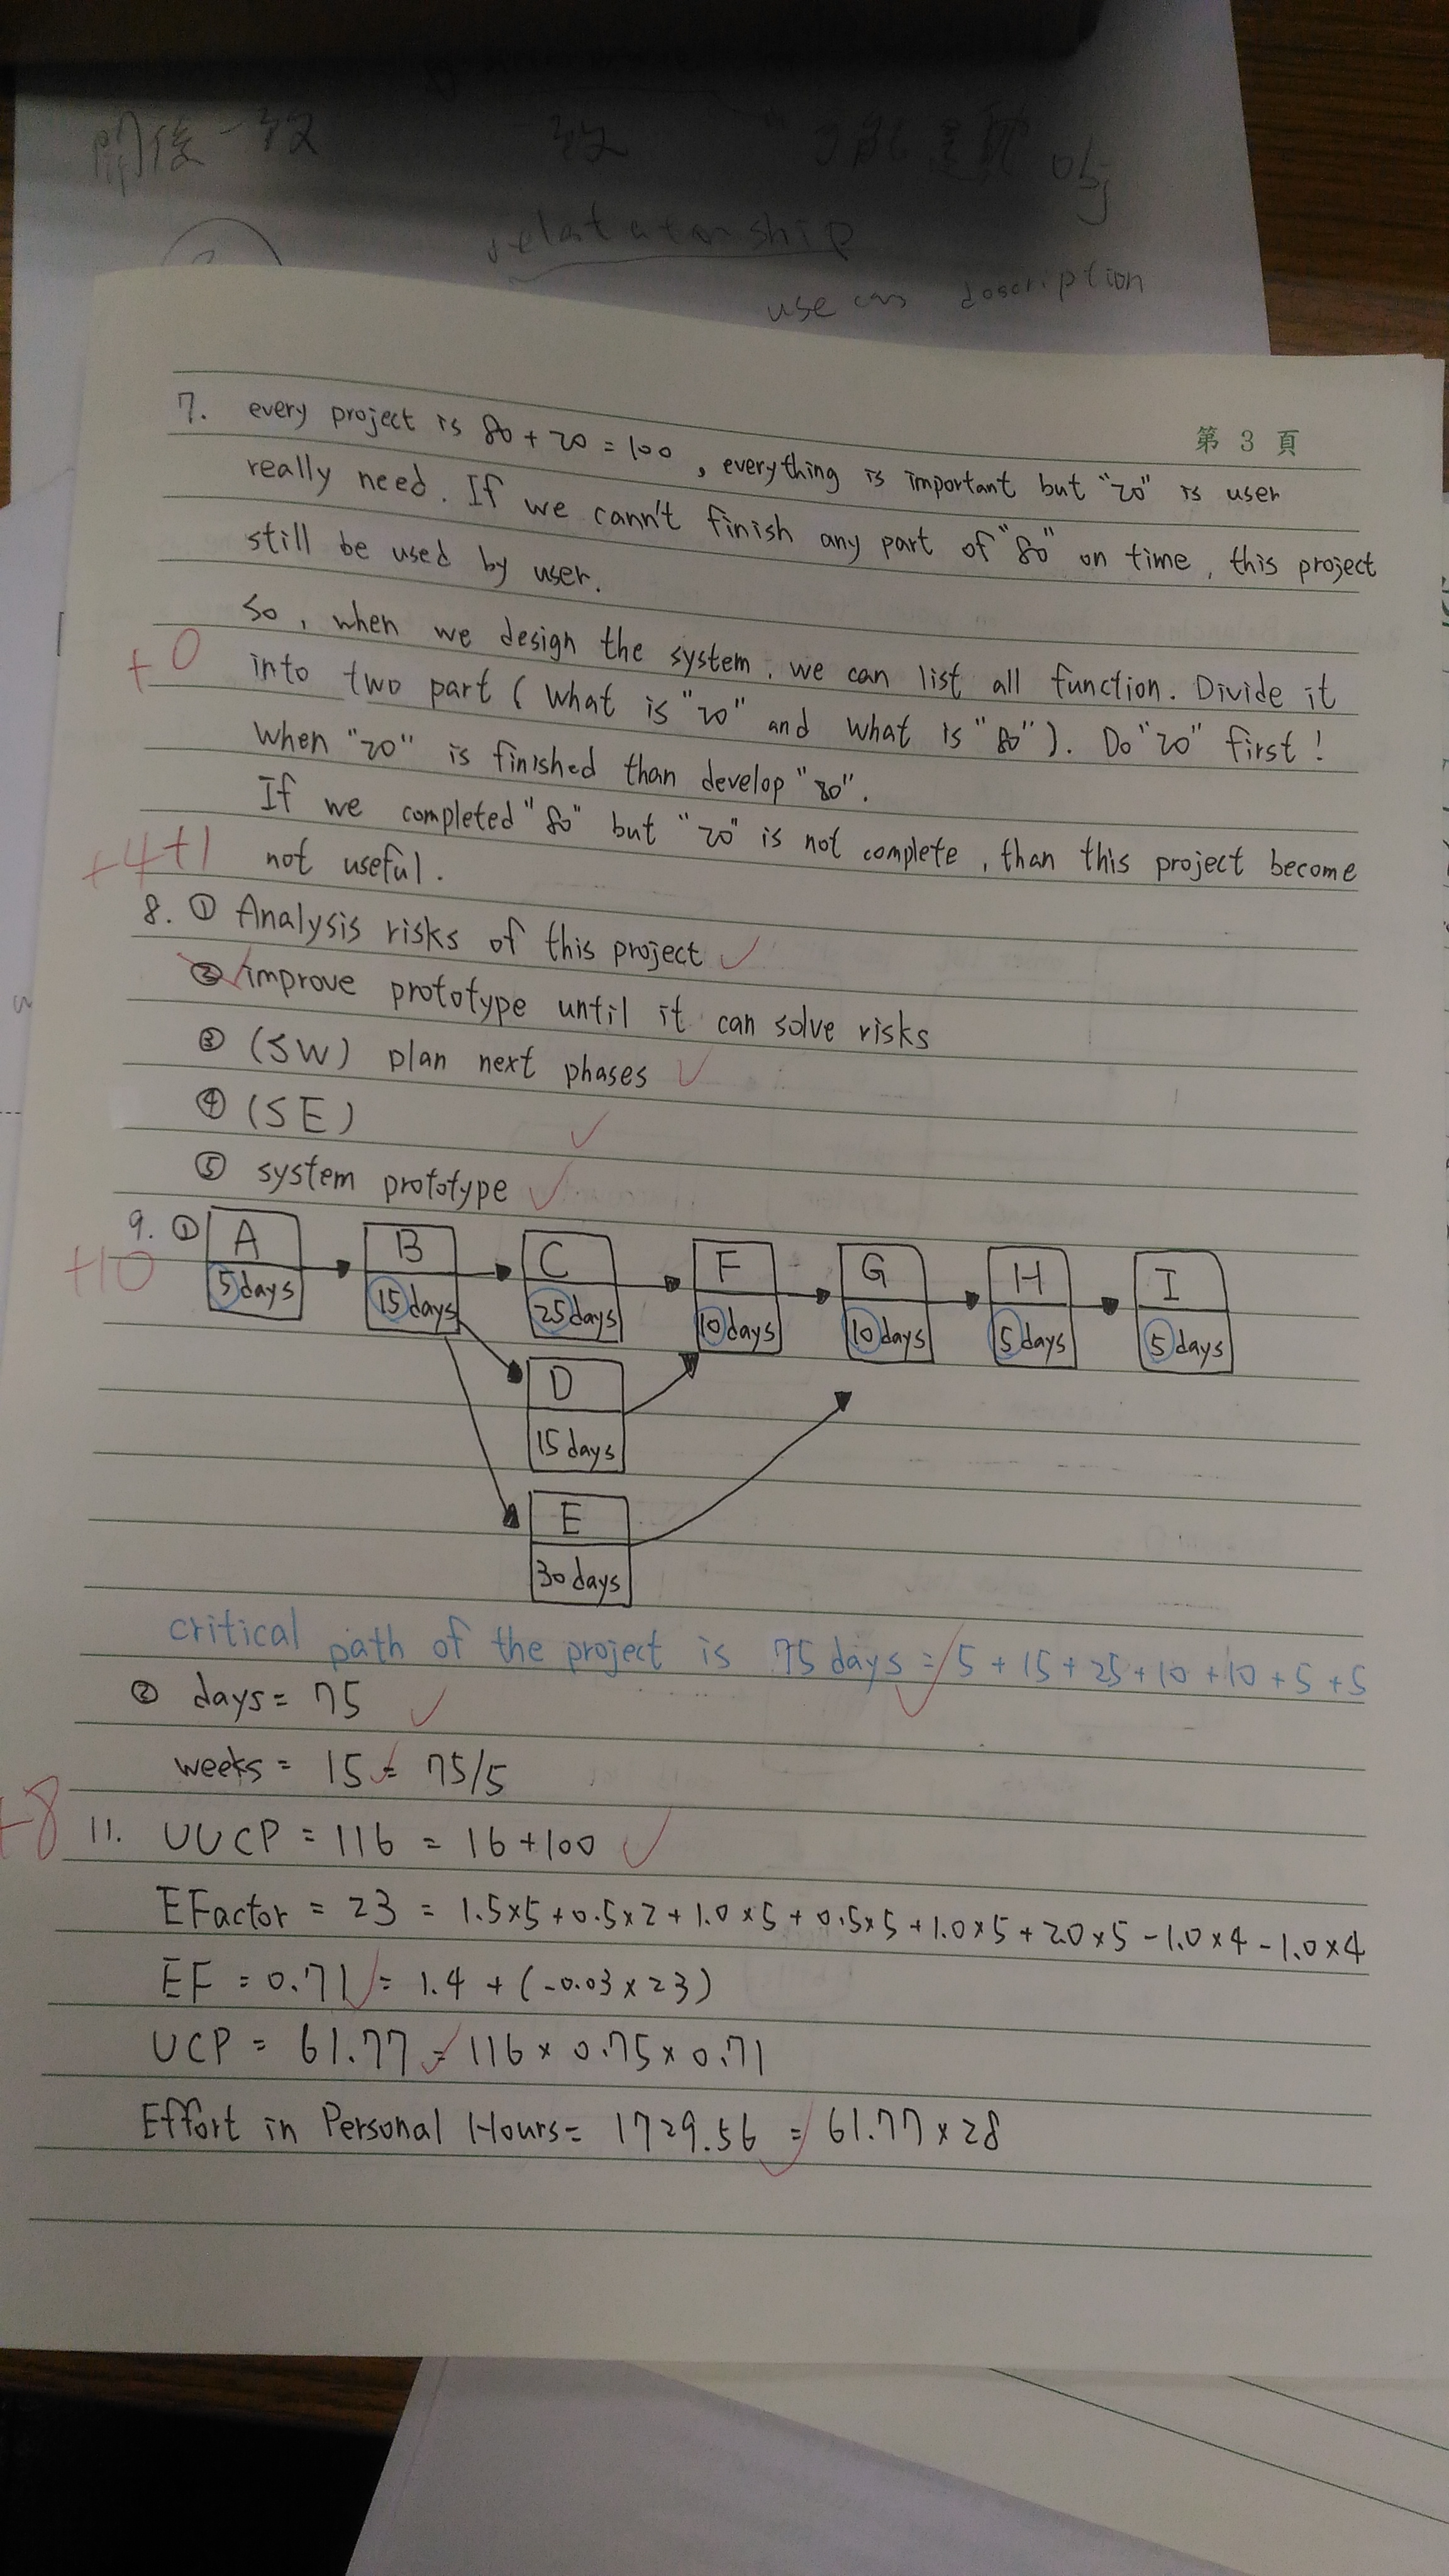 開後一致
obj
use description
第 3 頁
7. every project is 80 + 20 = 100 , everything is important but "20" is user
really need. If we cann't finish any part of "80" on time, this project
still be used by user.
So, when we design the system. we can list all function. Divide it
+0
into two part (what is "20" and what is "80"). Do "20" first!
When "20" is finished than develop "80".
If we completed "80" but "20" is not complete, than this project become
+4+1
not useful.
8. ① Analysis risks of this project
② improve prototype until it can solve risks
③ (SW) plan next phases
④ (SE)
⑤ system prototype
+10
9. ① A B C F G H I
5 days 15 days 25 days 10 days 10 days 5 days 5 days
D
15 days
E
30 days
critical path of the project is 75 days = 5 + 15 + 25 + 10 + 10 + 5 + 5
② days = 75
weeks = 15 = 75/5
+8
11. UUCP = 116 = 16 + 100
EFactor = 23 = 1.5×5 + 0.5×2 + 1.0×5 + 0.5×5 + 1.0×5 + 2.0×5 - 1.0×4 - 1.0×4
EF = 0.71 = 1.4 + (-0.03×23)
UCP = 61.77 = 116 × 0.75 × 0.71
Effort in Personal Hours = 1729.56 = 61.77 × 28